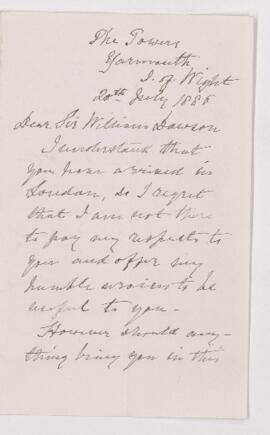 The Towers
Yarmouth,
I. of Wight
20th July 1886
Dear Sir William Dawson
I understand that
you have arrived in
London, & I regret
that I am not there
to pay my respects to
you and offer my
humble services to be
useful to you -
However should any-
thing bring you in this